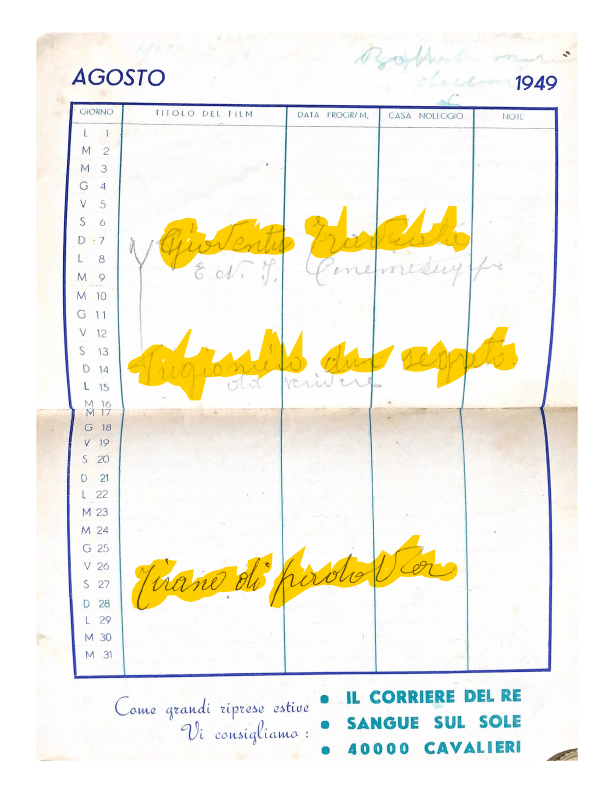 AGOSTO 1949
GIORNO TITOLO DEL FILM DATA PROGR/M. CASA NOLLOGIO NOTE
L 1
M 2
M 3
G 4
V 5
S 6
D 7 Gioventù Traviata
L 8 E. N. J.
M 9
M 10
G 11
V 12
S 13
D 14 Prigioniero di un segreto
L 15 da scrivere
M 16
M 17
G 18
V 19
S 20
D 21
L 22
M 23
M 24
G 25
V 26
S 27 Tirano di Padova
D 28
L 29
M 30
M 31
Come grandi riprese estive
Vi consigliamo :
• IL CORRIERE DEL RE
• SANGUE SUL SOLE
• 40000 CAVALIERI